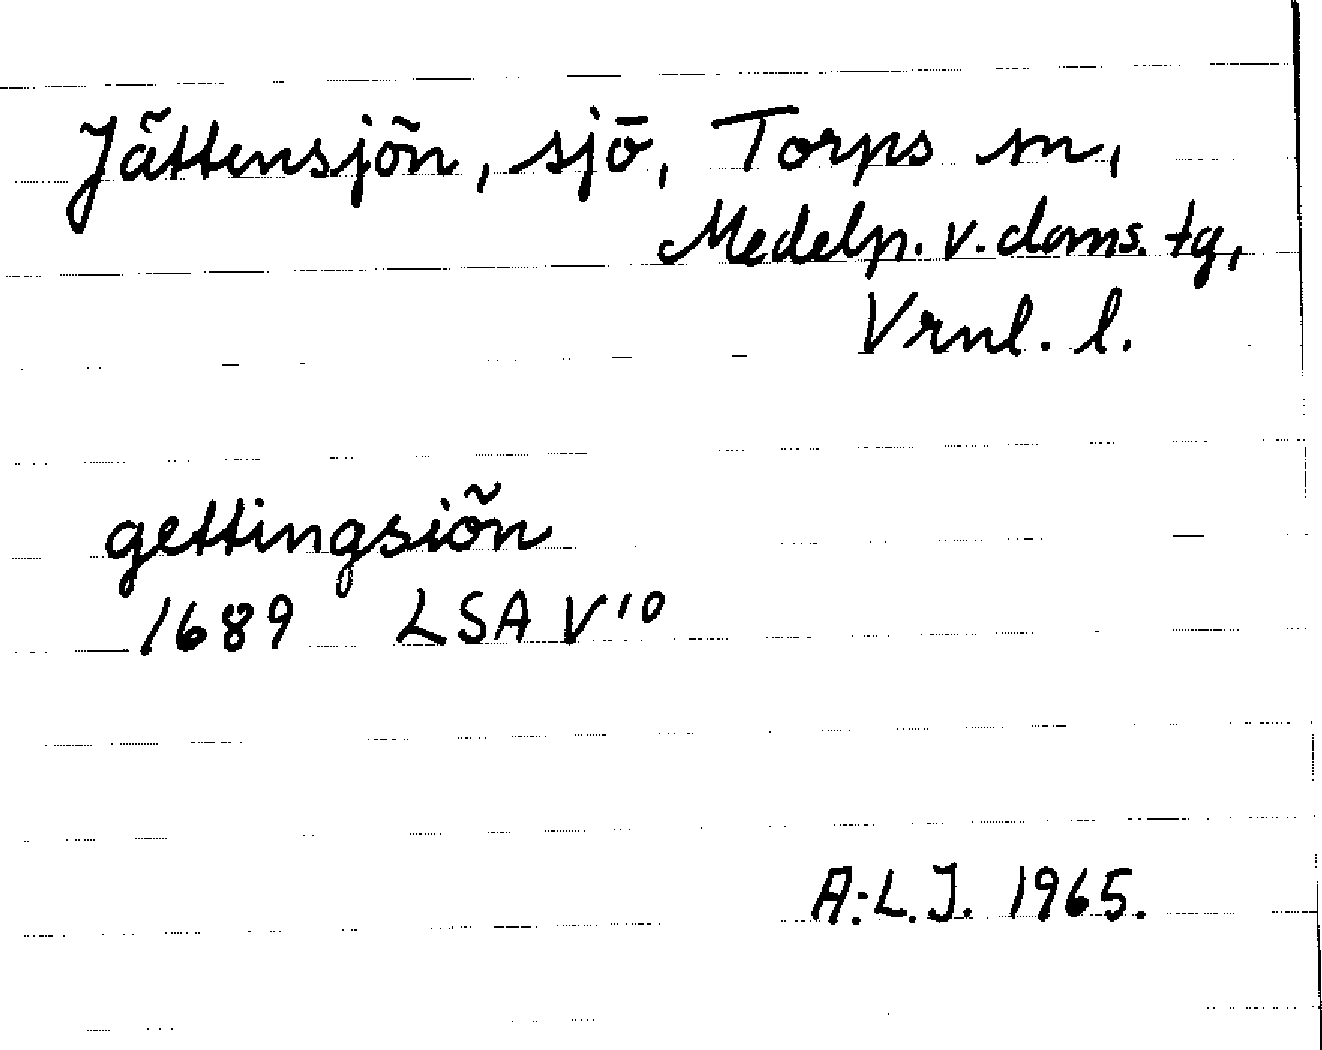 Jättensjön, sjö, Torps sn,
Medelp. v. doms. tg,
Vrnl. l.
gettingsiön
1689 LSA V10
A:L.J. 1965.